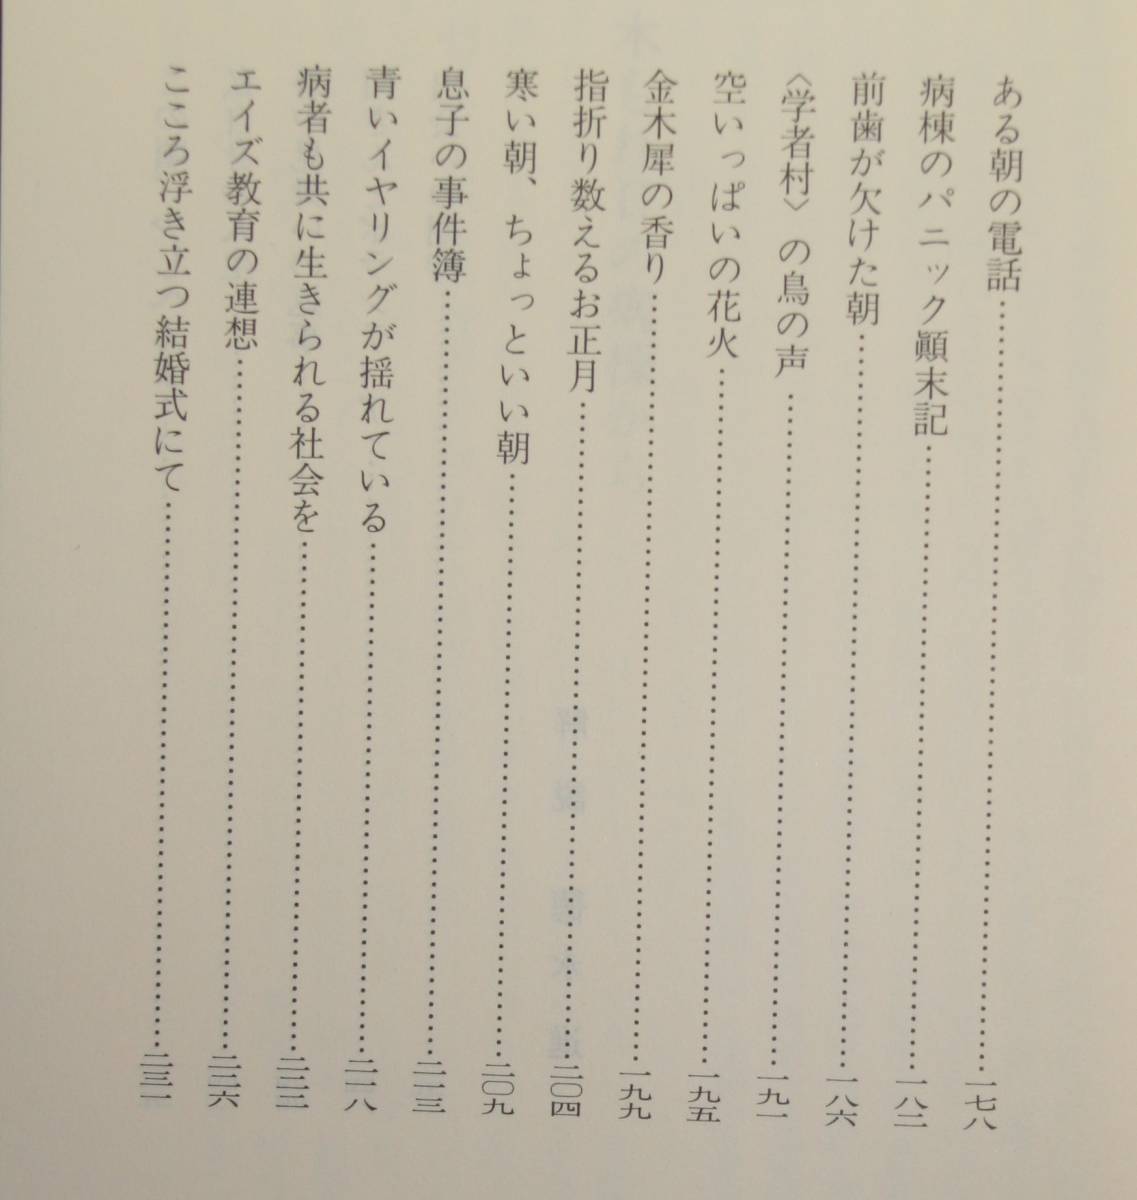 ある朝の電話……………………一七八
病棟のパニック顚末記……………………一八二
前歯が欠けた朝……………………一八六
〈学者村〉の鳥の声……………………一九一
空いっぱいの花火……………………一九五
金木犀の香り……………………一九九
指折り数えるお正月……………………二〇四
寒い朝、ちょっといい朝……………………二〇九
息子の事件簿……………………二一三
青いイヤリングが揺れている……………………二一八
病者も共に生きられる社会を……………………二二二
エイズ教育の連想……………………二二六
こころ浮き立つ結婚式にて……………………二三一